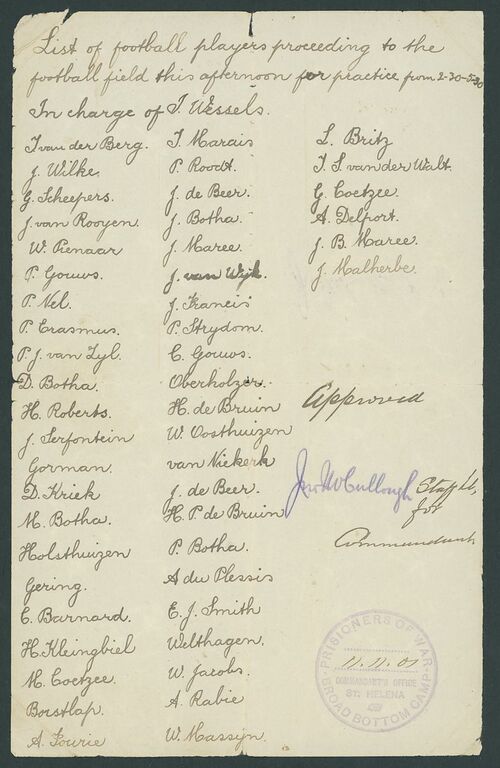 List of football players proceeding to the
football field this afternoon for practice from 2-30-5-30
In charge of T. Wessels.
T van der Berg.
J. Wilke.
G. Scheepers.
J. van Rooyen.
W. Pienaar
P. Gouws.
P. Nel.
P. Erasmus.
P. J. van Zyl.
D. Botha.
H. Roberts.
J. Serfontein
Gorman.
D. Kriek
M. Botha.
Holsthuizen
Gering.
C. Barnard.
H. Kleingbiel
M. Coetzee.
Borstlap.
A. Fourie
T. Marais
P. Roodt.
J. de Beer.
J. Botha.
J. Maree.
J. van Wijk.
J. Francis
P. Strydom.
C. Gouws.
Oberholzer.
H. de Bruin
W. Oosthuizen
van Niekerk
J. de Beer.
H. P. de Bruin
P. Botha.
A du Plessis
E. J. Smith
Welthagen.
W. Jacobs.
A. Rabie
W. Massyn.
L. Britz
T. S. van der Walt.
G. Coetzee.
A. Delport.
J. B. Maree.
J. Malherbe.
Approved
McCullough
for
Commandant
PRISIONERS OF WAR
11.11.01
COMMANDANT'S OFFICE
ST. HELENA
BROAD BOTTOM CAMP